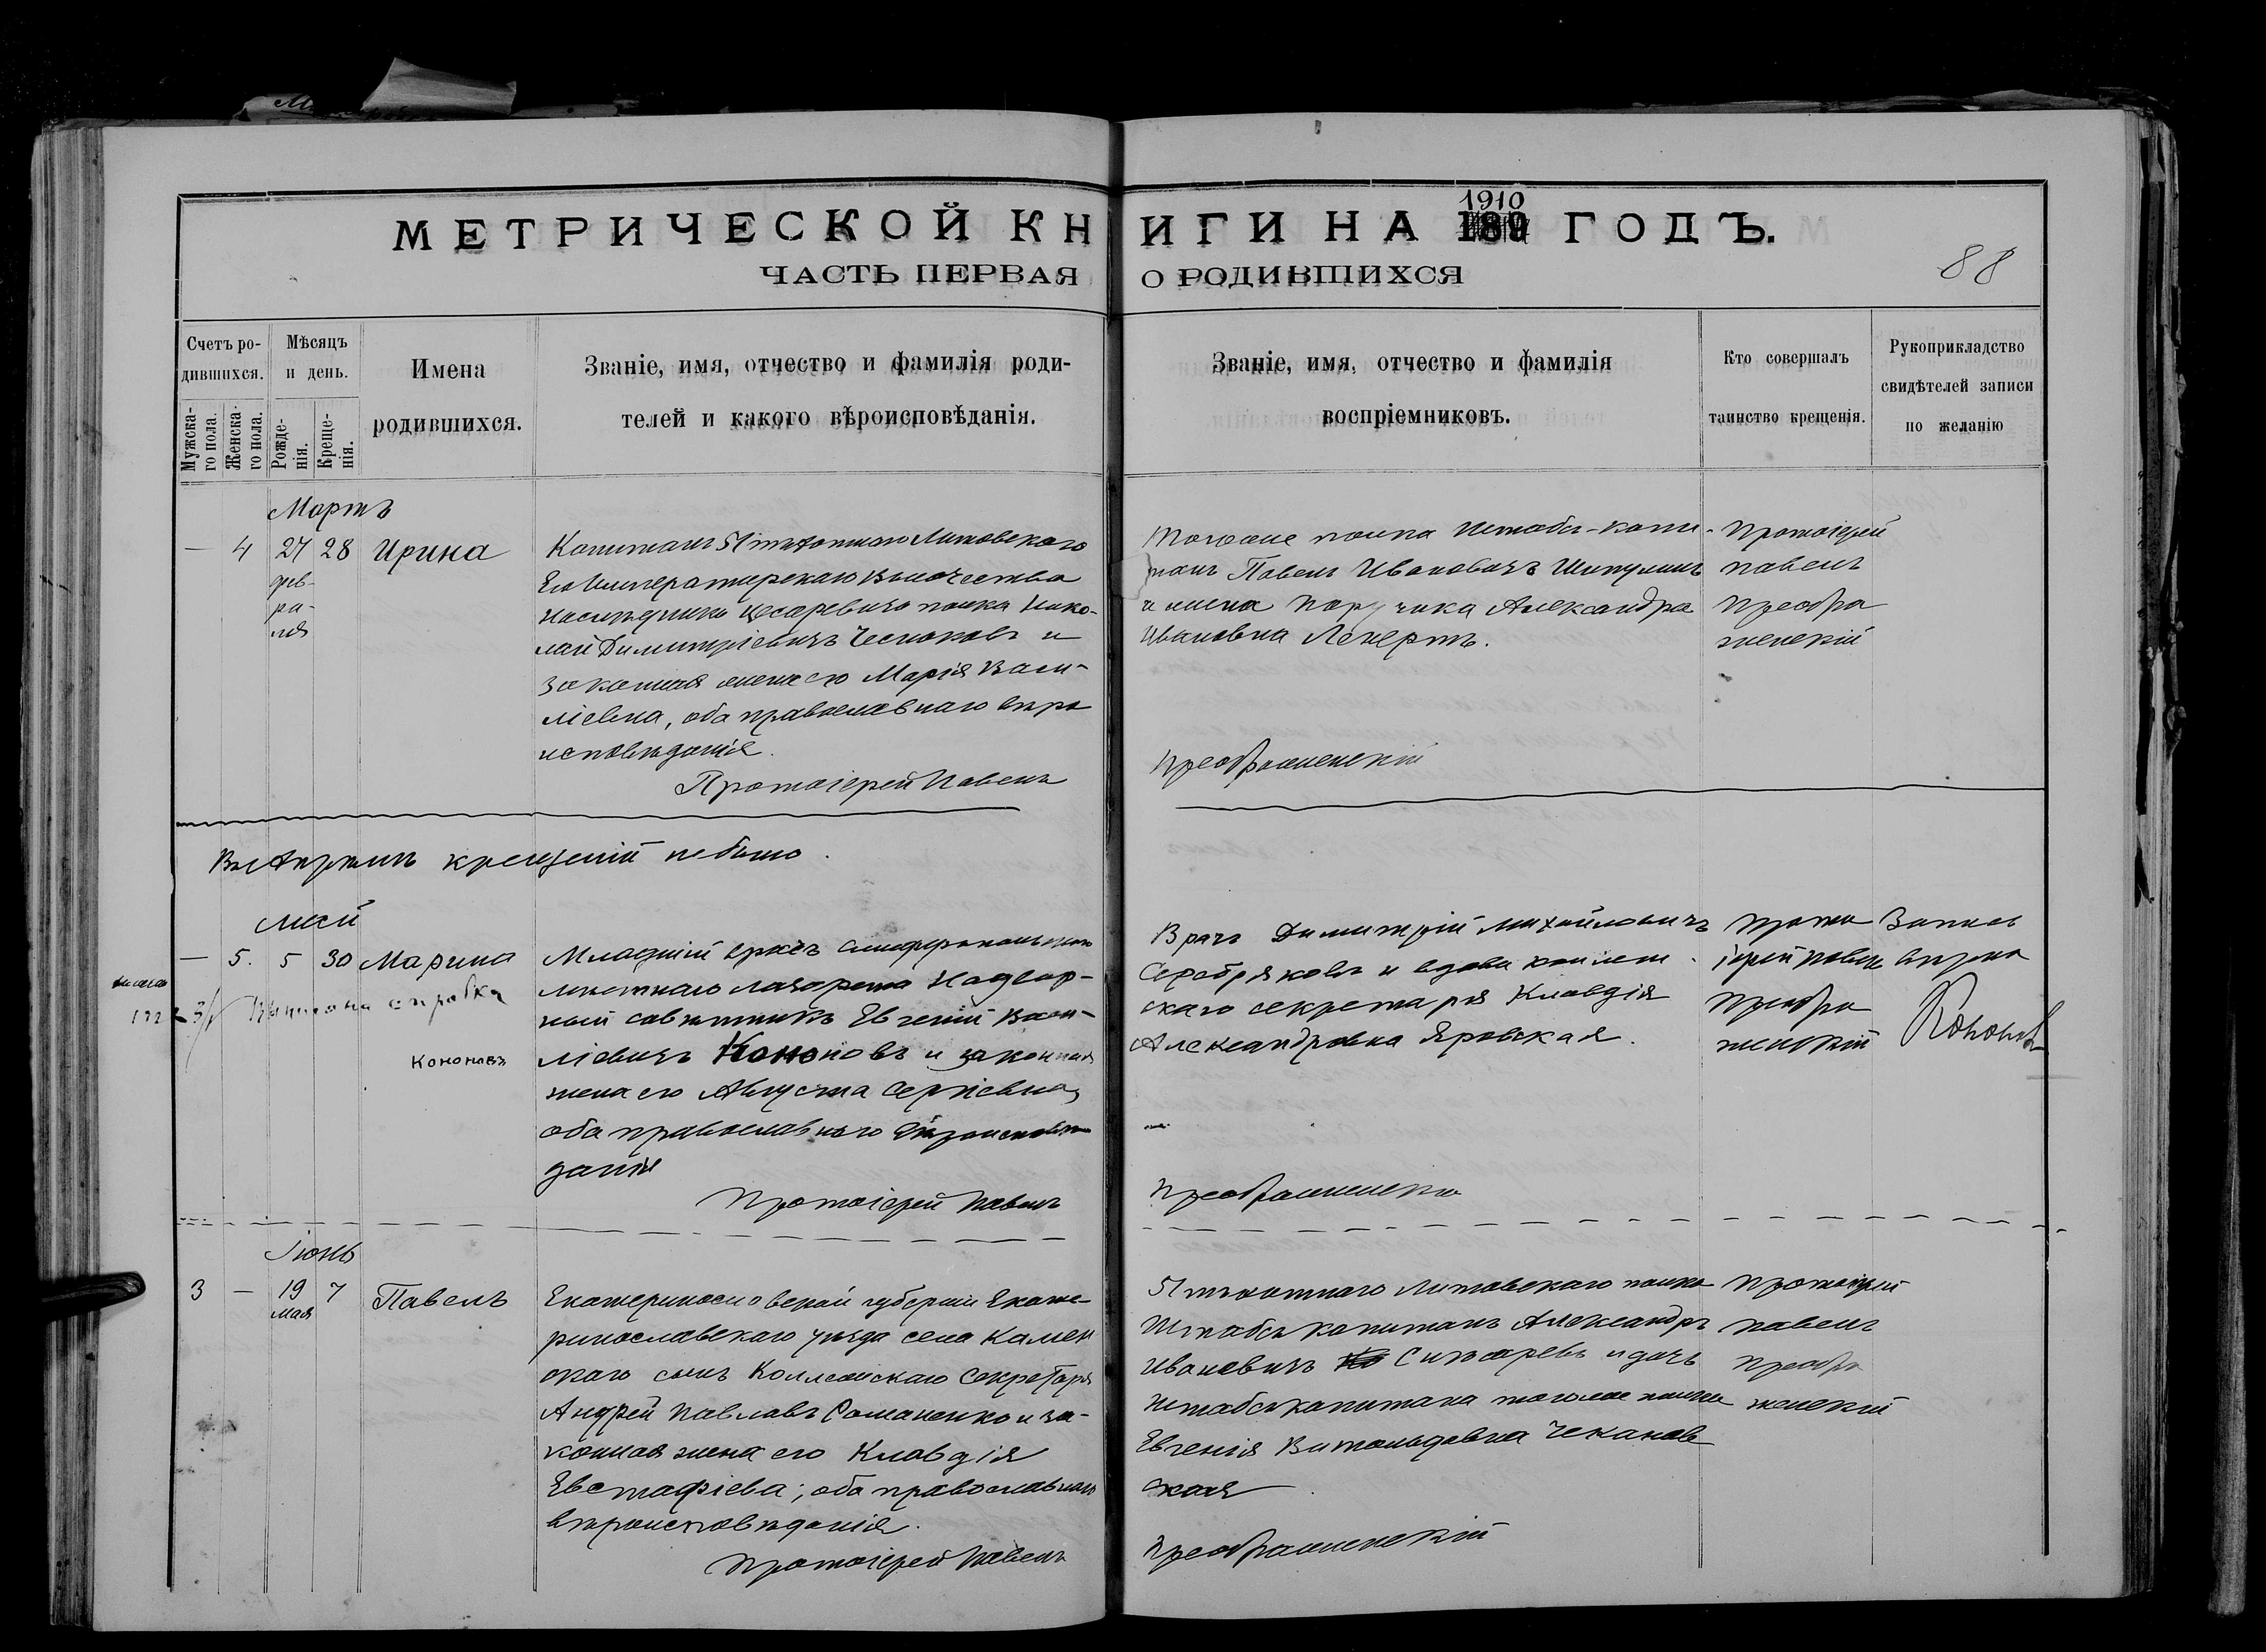 МЕТРИЧЕСКОЙ КНИГИ НА 1910 ГОДЪ.
ЧАСТЬ ПЕРВАЯ О РОДИВШИХСЯ
88
Счетъ ро-
дившихся.
Мужска-
го пола.
Женска-
го пола.
Мѣсяцъ
и день.
Рожде-
нія.
Креще-
нія.
Имена
родившихся.
Званіе, имя, отчество и фамилія роди-
телей и какого вѣроисповѣданія.
Званіе, имя, отчество и фамилія
воспріемниковъ.
Кто совершалъ
таинство крещенія.
Рукоприкладство
свидѣтелей записи
по желанію
Мартъ
— 4 27 28 Ирина
фев-
ра-
ля
Капитанъ 51 пѣхотнаго Литовскаго
Его Императорскаго Высочества
Наслѣдника Цесаревича полка Нико-
лай Димитріевичъ Чесноковъ и
законная жена его Марія Васи-
ліевна, оба православнаго вѣро
исповѣданія.
Протоіерей Павелъ
Тогоже полка Штабсъ-капи-
танъ Павелъ Ивановичъ
и жена Поручика Александра
Ивановна Ленертъ.
Преображенскій
Протоіерей
Павелъ
Преобра
женскій
Въ Апрѣлѣ крещеній небыло.
Май
— 5. 5 30 Марина
справка
Кононовъ
Младшій врачъ Симферопольскаго
мѣстнаго лазарета Надвор-
ный совѣтникъ Евгеній Васи-
ліевичъ Кононовъ и законная
жена его Августа Сергіевна,
оба православнаго вѣроисповѣ
данія
Протоіерей Павелъ
Врачъ Димитрій Михайловичъ
Серебряковъ и вдова коллеж-
скаго секретаря Клавдія
Александровна Яровская.
Преображенскій
Прото
іерей Павелъ
Преобра
женскій
Запись
вѣрна
Кононов
Іюнь
3 — 19 7 Павелъ
мая
Екатеринославской губерніи Екате-
ринославскаго уѣзда села Камен
скаго сынъ Коллежскаго Секретаря
Андрей Павловъ Романенко и за-
конная жена его Клавдія
Евстафіева; оба православнаго
вѣроисповѣданія.
Протоіерей Павелъ
51 пѣхотнаго Литовскаго полка
Штабсъ капитанъ Александръ
Ивановичъ и дочь
штабсъ капитана тогоже полка
Евгенія Витольдовна Чеканов
ская.
Преображенскій
Протоіерей
Павелъ
Преобра
женскій